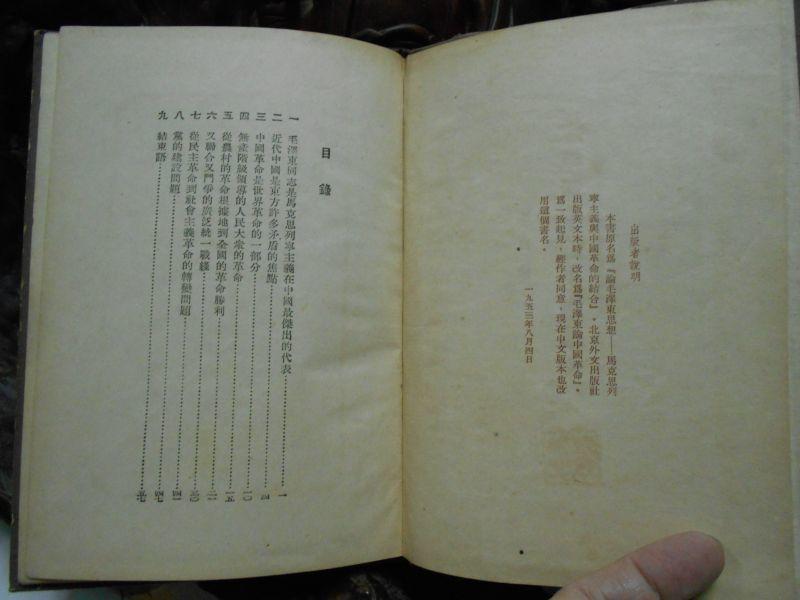 出版者說明
本書原名爲『論毛澤東思想——馬克思列
寧主義與中國革命的結合』。北京外文出版社
出版英文本時，改名爲『毛澤東論中國革命』。
爲一致起見，經作者同意，現在中文版本也改
用這個書名。
一九五三年八月四日
目錄
一 毛澤東同志是馬克思列寧主義在中國最傑出的代表 一
二 近代中國是東方許多矛盾的焦點 四
三 中國革命是世界革命的一部分 一〇
四 無產階級領導的人民大衆的革命 一五
五 從農村的革命根據地到全國的革命勝利
六 又聯合又鬥爭的廣泛統一戰綫
七 從民主革命到社會主義革命的轉變問題
八 黨的建設問題
九 結束語